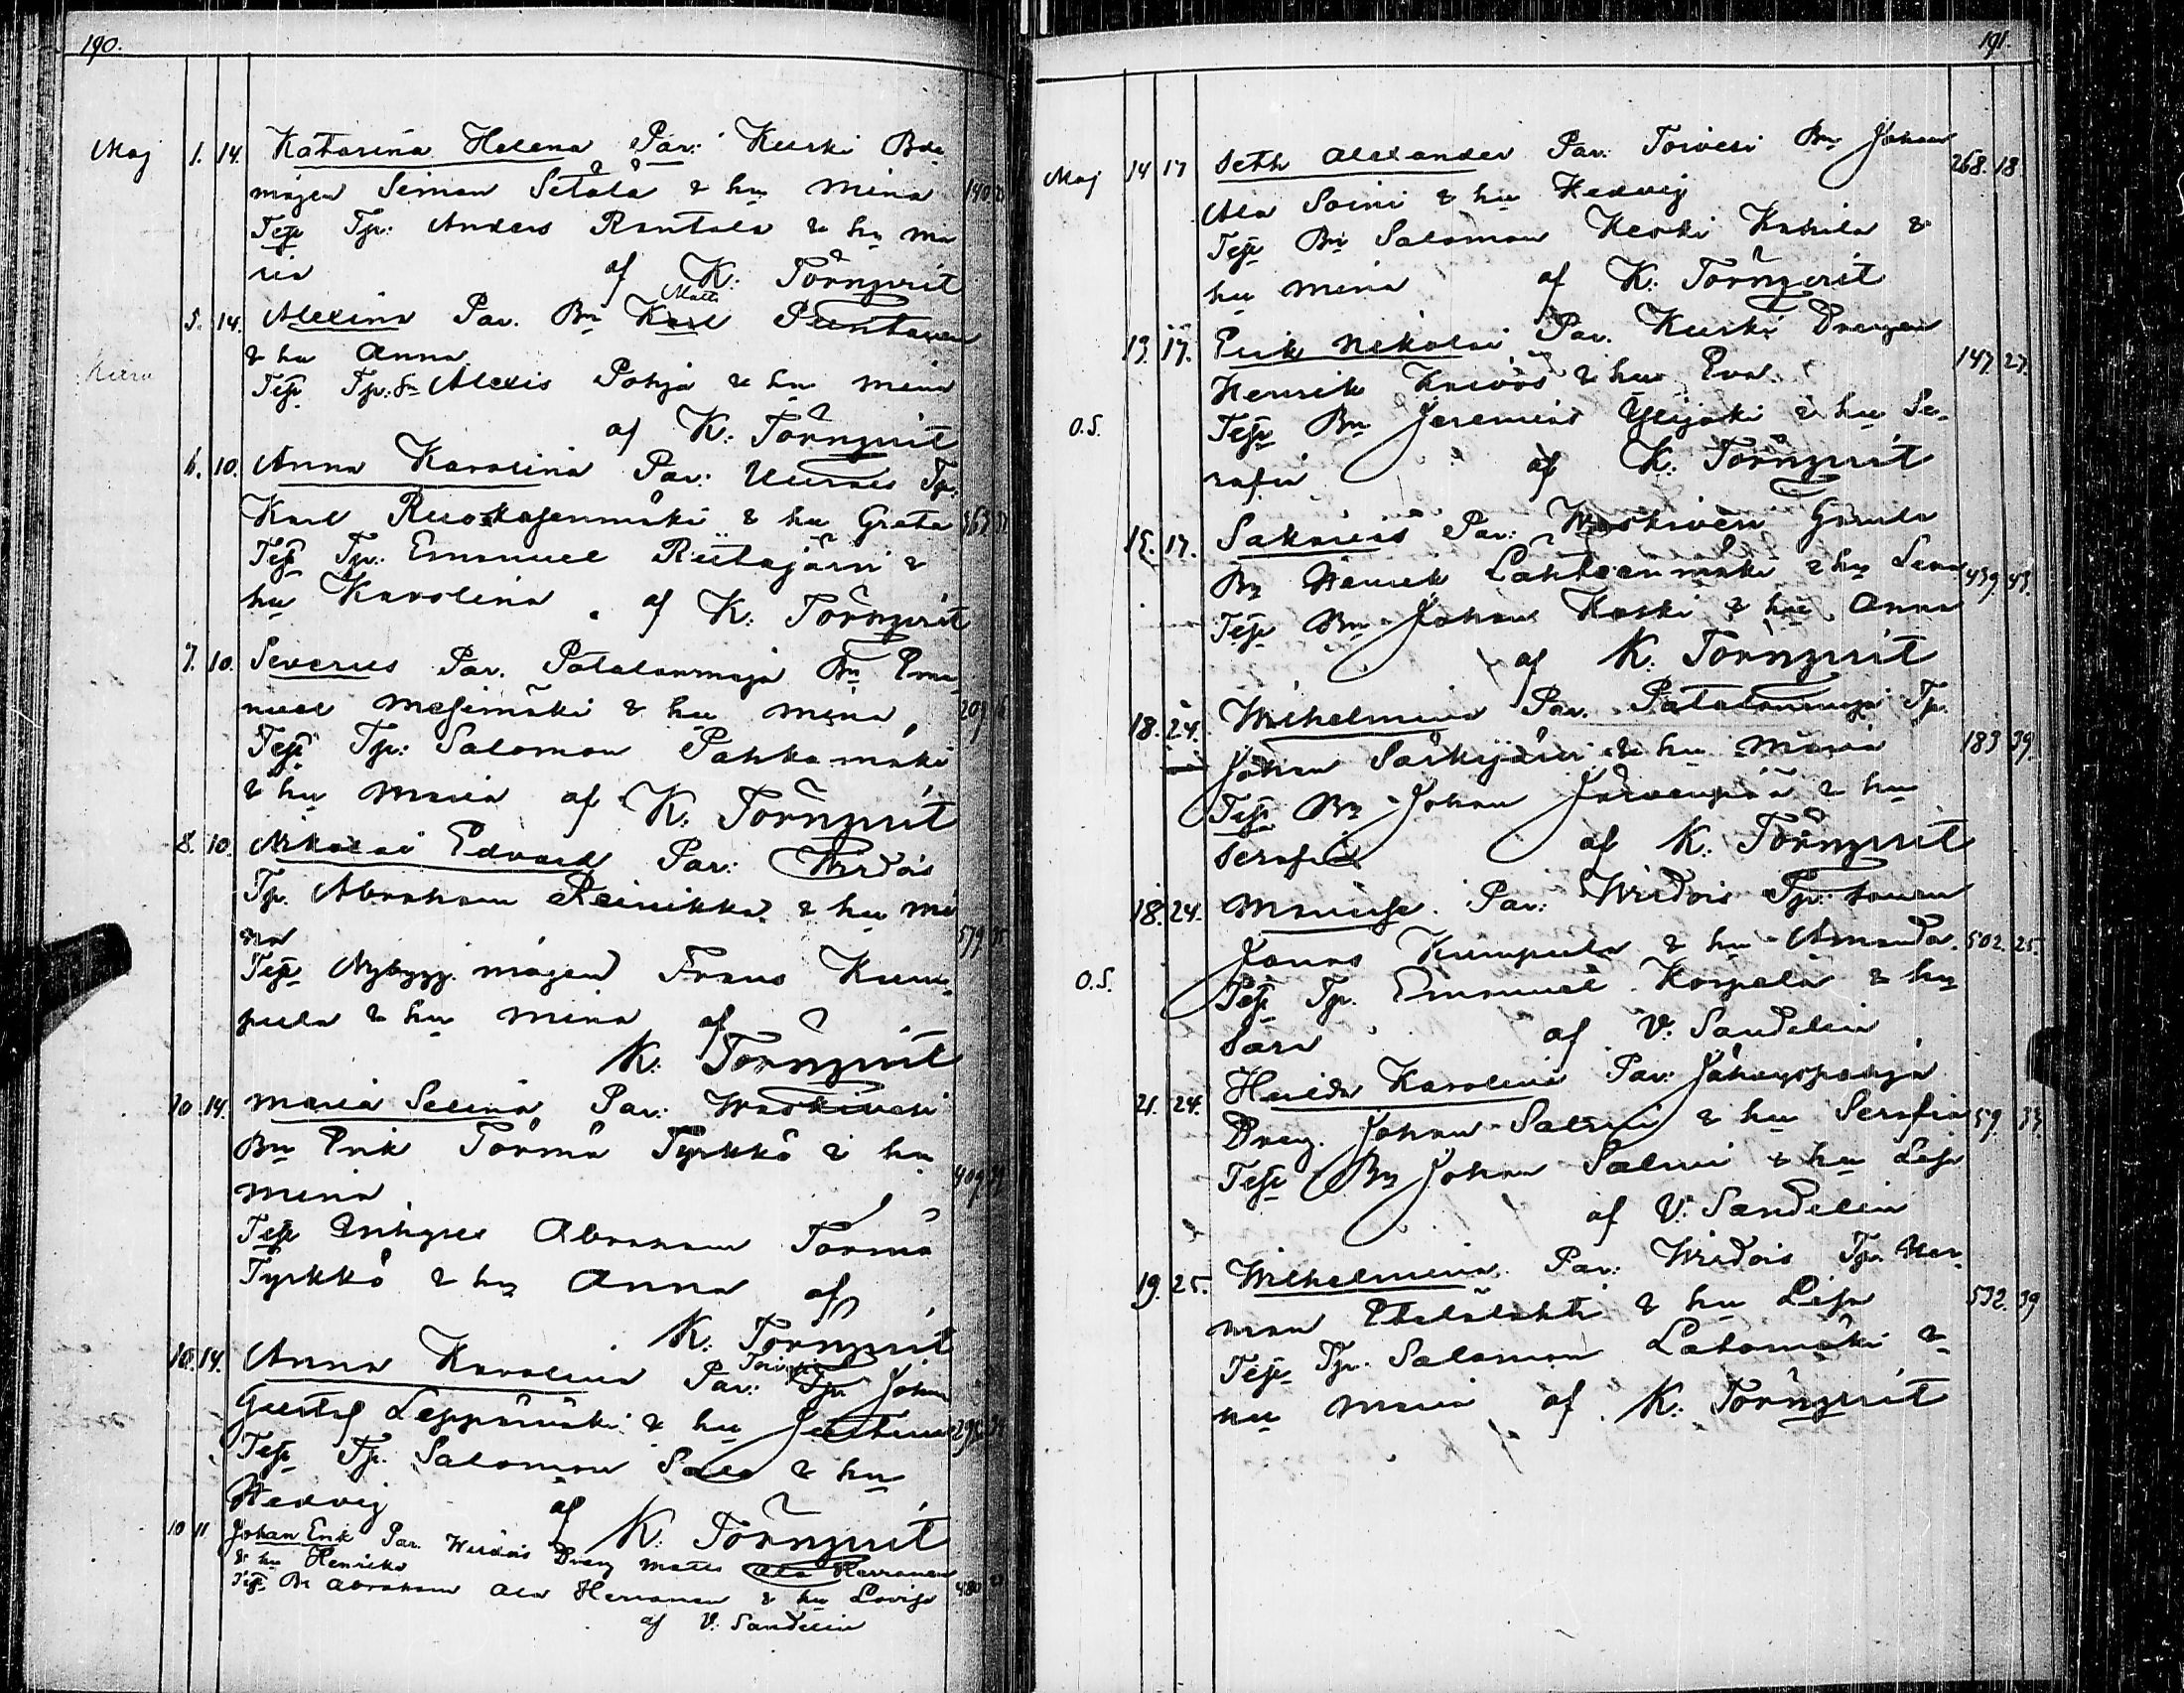 190.
Maj 1. 14. Katarina Helena Par: Kurki Bde
mågen Seman Setälä & hu Mina 140
Test Tp: Anders Rantala & hu Ma
ria af K. Törnqvist
Matts
5. 14. Alexina Par. Bn Karl Puntanen
& hu Anna
Test Tp: Sn Alexis Pohja & hu Mina
af K. Törnqvist
6. 10. Anna Karolina Par: Uurais Tp.
Karl Ruokasenmäki & hu Greta
Test Tp. Emanuel Riitajärvi &
hu Karolina af K. Törnqvist
7. 10. Severus Par. Patalanmaja Bn Ema
nuel Mesimäki & hu Mina 209
Test Tp: Salomon Pahkamäki
& hu Maria af K. Törnqvist
8. 10. Nikolai Edvard Par: Wirdois
Tp. Abraham Reinikka & hu Mi
na 579
Test Nybygg. mågen Frans Kum
pula & hu Mina af
K. Törnqvist
10. 14. Maria Selina Par: Waskivesi
Bn Erik Törmä Tyrkkö & hu
Mina 409
Test Abraham Törmä
Tyrkkö & hu Anna af
K. Törnqvist
Toivesi
10. 14. Anna Karolina Par: Tp. Johan
Gustaf Leppämäki & hu Justina
Test Tp. Salomon Salo & hu
Hedvig af K. Törnqvist
10 11 Johan Erik Par. Wirdois Dreng Matts Ala Herranen
& hu Henrika
Test Bn Abraham Ala Herranen & hu Lovisa 480
af V. Sandelin
191.
Maj 14 17 Seth Alexander Par. Toivesi Bn Johan 268. 18.
Ala Soini & hu Hedvig
Test Bn Salomon Keski Kahila &
hu Mina af K. Törnqvist
13. 17. Erik Nikolai Par. Kurki Drengen 147. 27.
Henrik & hu Eva
O.S. Test Bn Jeremias Ylijoki & hu Se-
rafia af K. Törnqvist
15. 17. Sakarias Par: Waskivesi Gamla
Bn Henrik Lahdenmäki & hu Lena 439. 43.
Test Bn Johan Koski & hu Anna
af K. Törnqvist
18. 24. Wilhelmina Par. Patalanmaja Tp.
Johan Särkijärvi & hu Maria 183 39.
Test Bn Johan Järvenpää & hu
Serafia af K. Törnqvist
18. 24. Par: Wirdois Tp: sonen
Jonas Kumpula & hu Amanda. 502. 25.
O.S. Test Tp. Emanuel Korpela & hu
Sara af V. Sandelin
21. 24. Hulda Karolina Par: Jähdyspohja
Dreng. Johan Salmi & hu Serafia 59. 33.
Test Bn Johan Salmi & hu Lisa
af V. Sandelin
19. 25. Wilhelmina Par: Wirdois Tp. Her
man Etelälahti & hu Lisa 532. 39
Test Tp. Salomon Latomäki &
hu Maria af K. Törnqvist